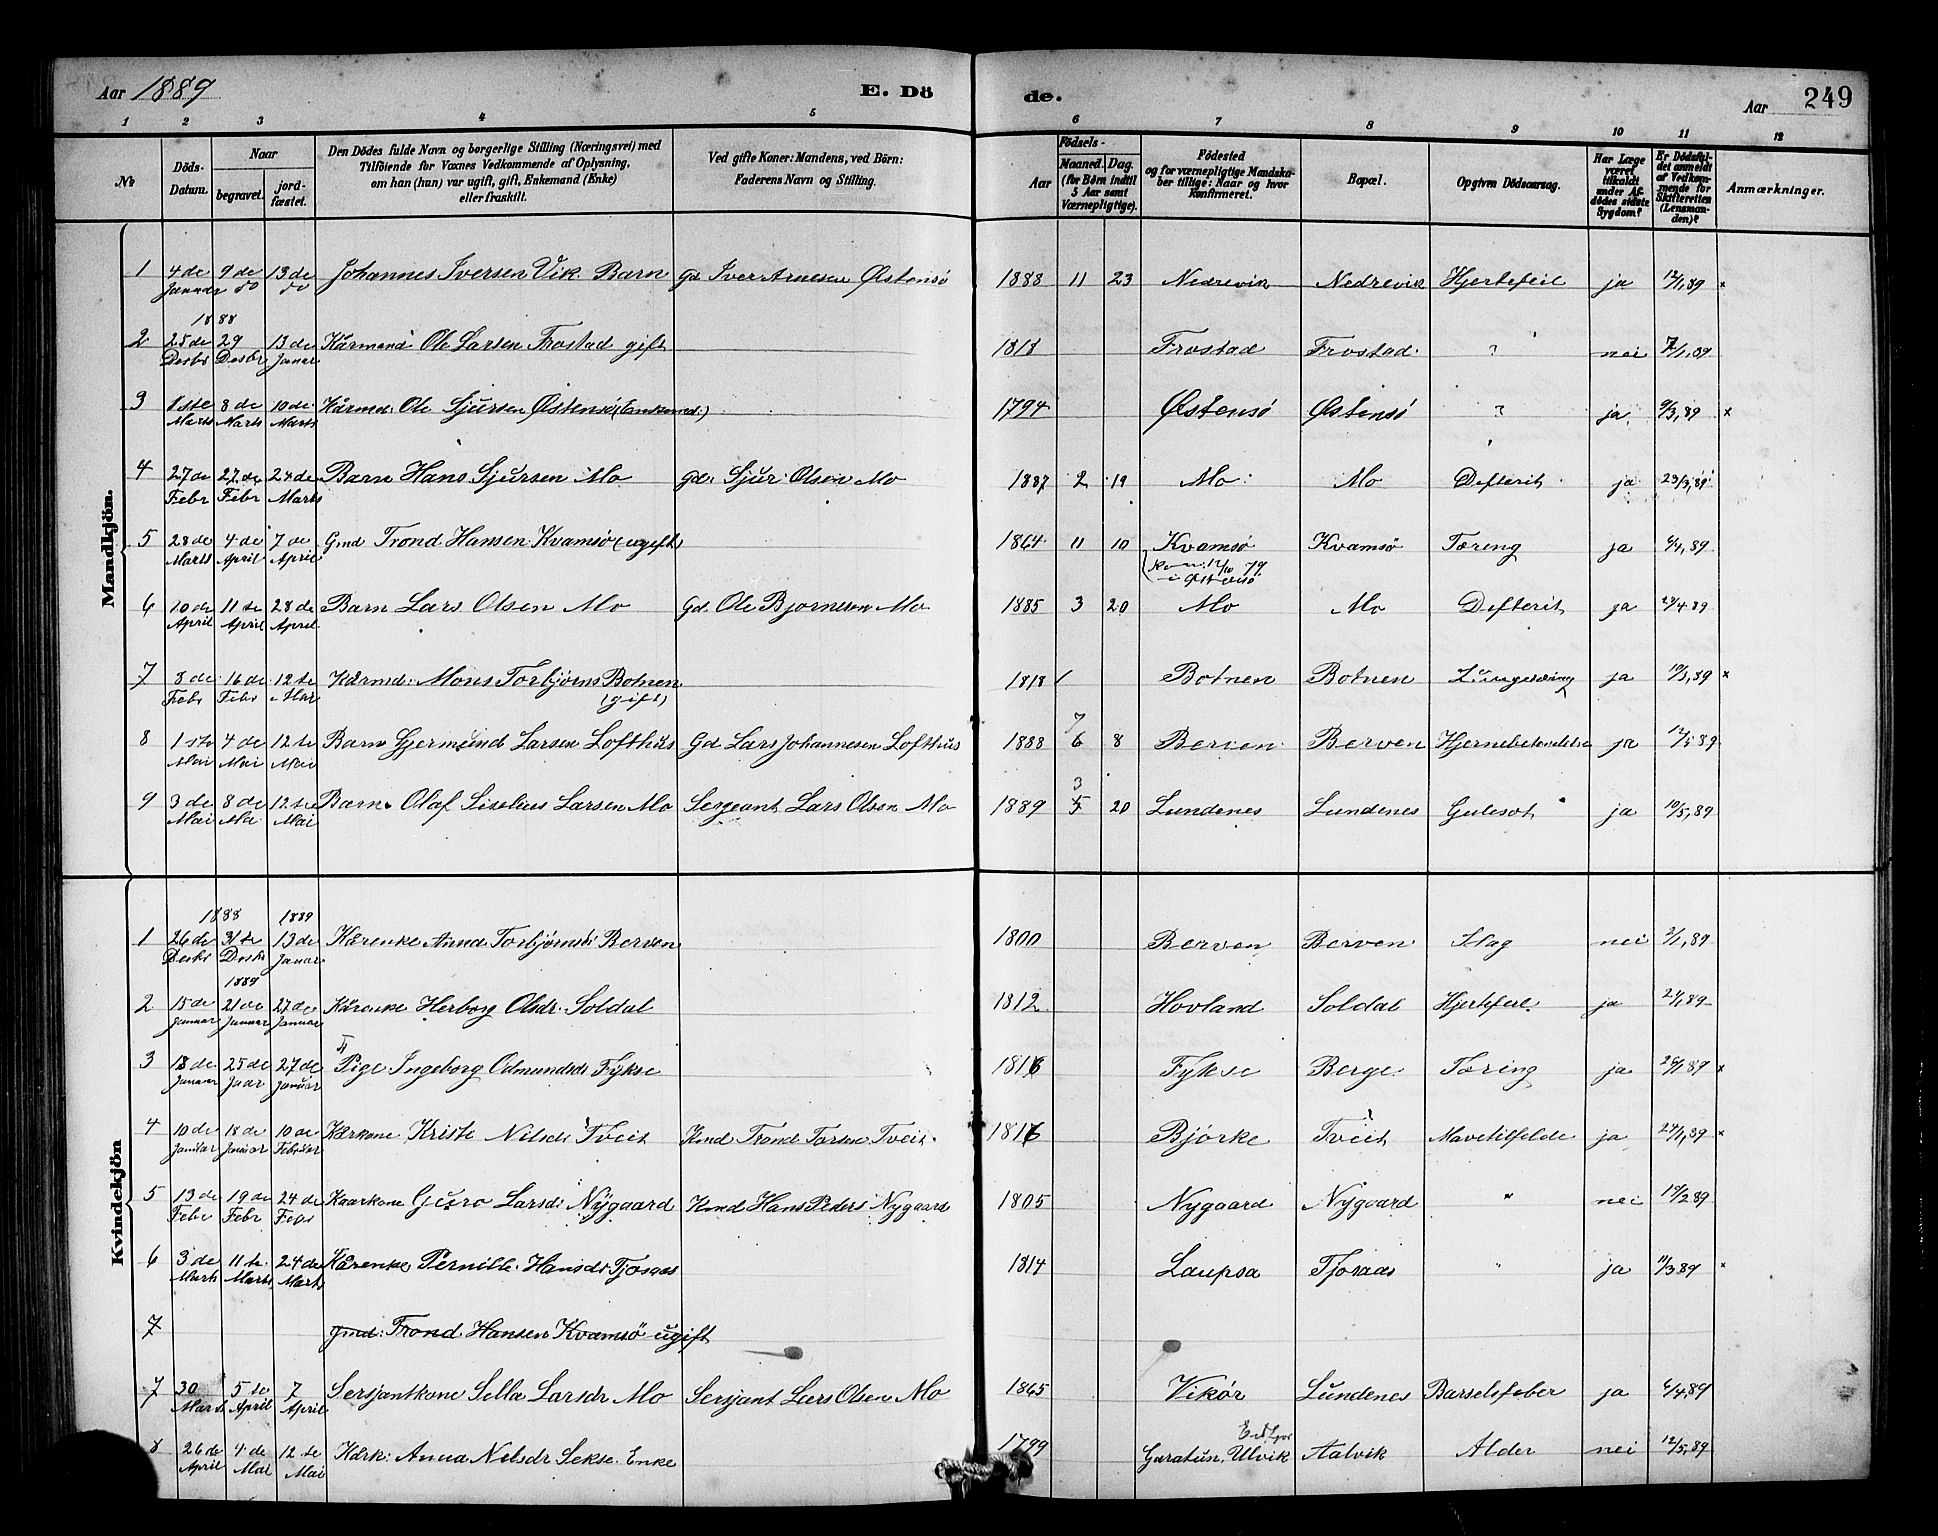 Aar 1889 E. Dö de. Aar 249
1 2 3 4 5 6 7 8 9 10 11 12
No
Döds-Datum.
Naar
begravet.
jord-fæstet.
Den Dödes fulde Navn og borgerlige Stilling (Næringsvei) med
Tilföiende for Voxnes Vedkommende af Oplysning,
om han (hun) var ugift, gift, Enkemand (Enke)
eller fraskilt.
Ved gifte Koner: Mandens, ved Börn:
Faderens Navn og Stilling.
Födsels-
Aar
Maaned. Dag.
(for Börn indtil
5 Aar samt
Værnepligtige).
Födested
og for værnepligtige Mandska-
ber tillige: Naar og hvor
Konfirmeret.
Bopæl.
Opgiven Dödsaarsag.
Har Læge
været
tilkaldt
under Af-
dödes sidste
Sygdom?
Er Dödsfal-
det anmeldt
af Vedkom-
mende for
Skifteretten
(Lensman-
den)?
Anmærkninger.
Mandkjön.
1 4de Januar 9de do 13de do Johannes Iversen Vik. Barn Gd Iver Arnesen Østensö 1888 11 23 Nedrevik Nedrevik Hjertefeil ja 12/1,89 x
1888
2 25de Desbr 29 Desbr 13de Januar Kårmand Ole Larsen Frostad gift 1818 Frostad Frostad ? nei 7/1,89
3 1ste Marts 8de Marts 10de Marts Kårmd: Ole Sjursen Østensö (Enkemd:) 1794 Østensö Østensö ? ja 9/3,89 x
4 27de Febr 27de Febr 24de Marts Barn Hans Sjursen Mo gd: Sjur Olsen Mo 1887 2 19 Mo Mo Defterit ja 23/3,89
5 28de Marts 4de April 7de April Gmd Trond Hansen Kvamsö (ugift) 1864 11 10 Kvamsö Kvamsö Tæring ja 6/4,89
Kon: 12/10 79
i Østensö
6 10de April 11te April 28de April Barn Lars Olsen Mo Gd. Ole Bjornesen Mo 1885 3 20 Mo Mo Defterit ja 28/4 89
7 8de Febr 16de Febr 12te Mai Kårmd: Mons Torbjörns Botnen (gift) 1818 Botnen Botnen ja 10/3,89 x
8 1ste Mai 4de Mai 12te Mai Barn Gjermund Larsen Lofthus Gd Lars Johannesen Lofthus 1888 7 6 8 Berven Berven Hjernebetendelse ja 12/5 89
9 3de Mai 8de Mai 12te Mai Barn Olaf Larsen Mo Sergeant Lars Olsen Mo 1889 3 5 20 Lundenes Lundenes Gulesot ja 10/5,89
Kvindekjön
1888 1889
1 26de Desbr 31te Desbr 13de Januar Kårenke Anna Torbjörnsd: Berven 1800 Berven Berven Slag nei 2/1,89
1889
2 15de Januar 21de Januar 27de Januar Kårenke Herborg Olsdr. Soldal 1812 Hovland Soldal Hjertefeil ja 24/1,89
3 18de Januar 25de Jaar 27de Januar Pige Ingeborg Odmundsdr Fykse 1816 Fykse Berge Tæring ja 26/1 89 x
4 10de Januar 18de Januar 10de Februar Kårkone Kristi Nilsdr Tveit Kmd Trond Tveit 1816 Bjórke Tveit Mavetilfelde ja 24/1,89 x
5 13de Febr 19de Febr 24de Febr Kaarkone Guro Larsdr Nygaard Kmd Hans Peders Nygaard 1805 Nygaard Nygaard " nei 19/2 89
6 3de Marts 11te Marts 24de Marts Kårenke Pernille Hansdr Tjoraas 1814 Laupsa Tjoraas " ja 11/3 89 x
7 gmd: Trond Hansen Kvamsö ugift
7 30 Marts 5te April 7 April Sersjantkone Sella Larsdr Mo Sersjant Lars Olsen Mo 1865 Vikör Lundenes Barselsfeber ja 6/4,89
8 26de April 4de Mai 12te Mai Kårk: Anna Nilsdr Sekse. Enke 1799 Garatun, Ulvik Aalvik Alder nei 12/5,89